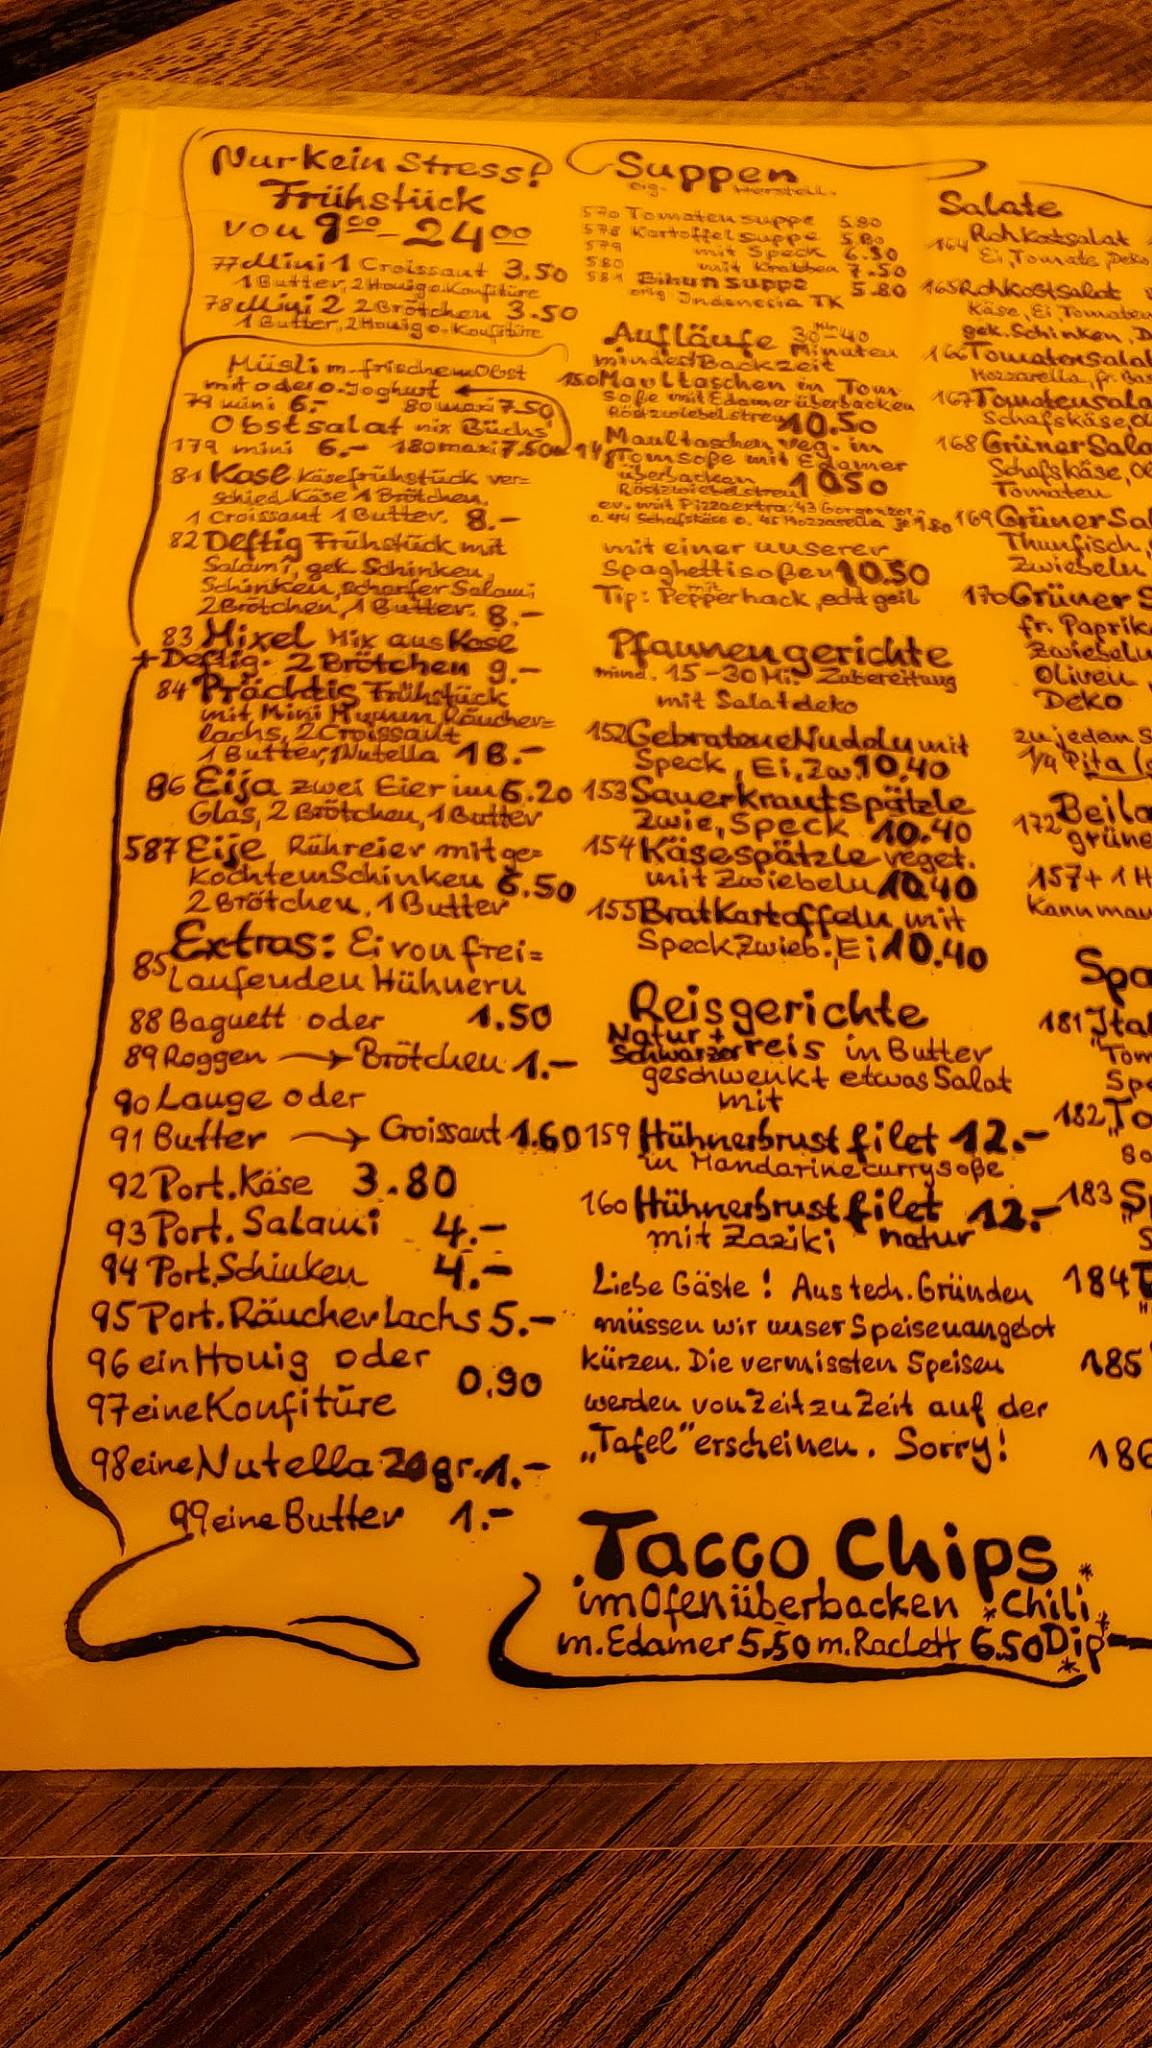 Nur Kein Stress!
Frühstück
von 9⁰⁰-24⁰⁰
77 Mini 1 Croissant 3.50
1 Butter, 2 Honig o. Konfitüre
78 Mini 2 2 Brötchen 3.50
1 Butter, 2 Honig o. Konfitüre
Müsli m. frischem Obst
mit oder o. Joghurt
79 mini 6.- 80 maxi 7.50
Obstsalat nix Büchs'
179 mini 6.- 180 maxi 7.50
81 Kase Käsefrühstück ver=
schied. Käse 1 Brötchen,
1 Croissant 1 Butter. 8.-
82 Deftig Frühstück mit
Salami, gek. Schinken,
Schinken, scharfer Salami
2 Brötchen, 1 Butter. 8.-
83 Mixel Mix aus Kase
+ Deftig. 2 Brötchen 9.-
84 Prächtig Frühstück
mit Mini Mumm, Räucher=
lachs, 2 Croissant
1 Butter, 1 Nutella 18.-
86 Eija zwei Eier im 6.20
Glas, 2 Brötchen, 1 Butter
587 Eije Rühreier mit ge=
kochtem Schinken 6.50
2 Brötchen, 1 Butter
Extras: Ei von frei=
85 Laufenden Hühnern
88 Baguett oder 1.50
89 Roggen → Brötchen 1.-
90 Lauge oder
91 Butter → Croissant 1.60
92 Port. Käse 3.80
93 Port. Salami 4.-
94 Port. Schinken 4.-
95 Port. Räucher Lachs 5.-
96 ein Honig oder
0.90
97 eine Konfitüre
98 eine Nutella 20gr. 1.-
99 eine Butter 1.-
Suppen
orig. Herstell.
570 Tomatensuppe 5.80
578 Kartoffelsuppe 5.80
579 mit Speck 6.50
580 mit Krabben 7.50
581 Bihunsuppe 5.80
orig. Indonesia TK
Aufläufe 30-40
Minuten
mindest Backzeit
150 Maultaschen in Tom
soße mit Edamer überbacken
Röstzwiebelstreu 10.50
Maultaschen veg. in
Tomsoße mit Edamer
überbacken 10.50
Röstzwiebelstreu
ev. mit Pizzaextra: 43 Gorgonzola
o. 44 Schafskäse o. 45 Mozzarella je 1.80
mit einer unserer
Spaghettisoßen 10.50
Tip: mit Pepperhack, echt geil
Pfannengerichte
mind. 15-30 Mi. Zubereitung
mit Salatdeko
152 Gebratene Nuddly mit
Speck, Ei, Zw. 10.40
153 Sauerkrautspätzle
Zwie, Speck 10.40
154 Käsespätzle veget.
mit Zwiebeln 10.40
155 Bratkartoffeln mit
Speck, Zwieb., Ei 10.40
Reisgerichte
Natur +
Schwarzer reis in Butter
geschwenkt etwas Salat
mit
159 Hühnerbrustfilet 12.-
in Mandarinecurrysoße
160 Hühnerbrustfilet 12.-
mit Zaziki natur
Liebe Gäste! Aus tech. Gründen
müssen wir unser Speisenangebot
kürzen. Die vermissten Speisen
werden von Zeit zu Zeit auf der
„Tafel" erscheinen. Sorry!
Tacco Chips
im Ofen überbacken *Chili*
m. Edamer 5,50 m. Raclett 6.50 Dip
Salate
164 Rohkostsalat
Ei, Tomate, Deko
165 Rohkostsalat
Käse, Ei Tomaten
gek. Schinken, D
166 Tomatensalat
Mozzarella, fr. Bas
167 Tomatensala
Schafskäse, Ol
168 Grüner Sala
Schafskäse, Ol
Tomaten
169 Grüner Sal
Thunfisch,
Zwiebeln
170 Grüner S
fr. Paprik
Zwiebeln
Oliven
Deko
zu jedem S
1/4 Pita (
Beila
172 grüne
157 + 1 H
Kann man
Spa
181 Ital
"Tom
Spe
182 "To
So
183 "Sp
S
184
185
186